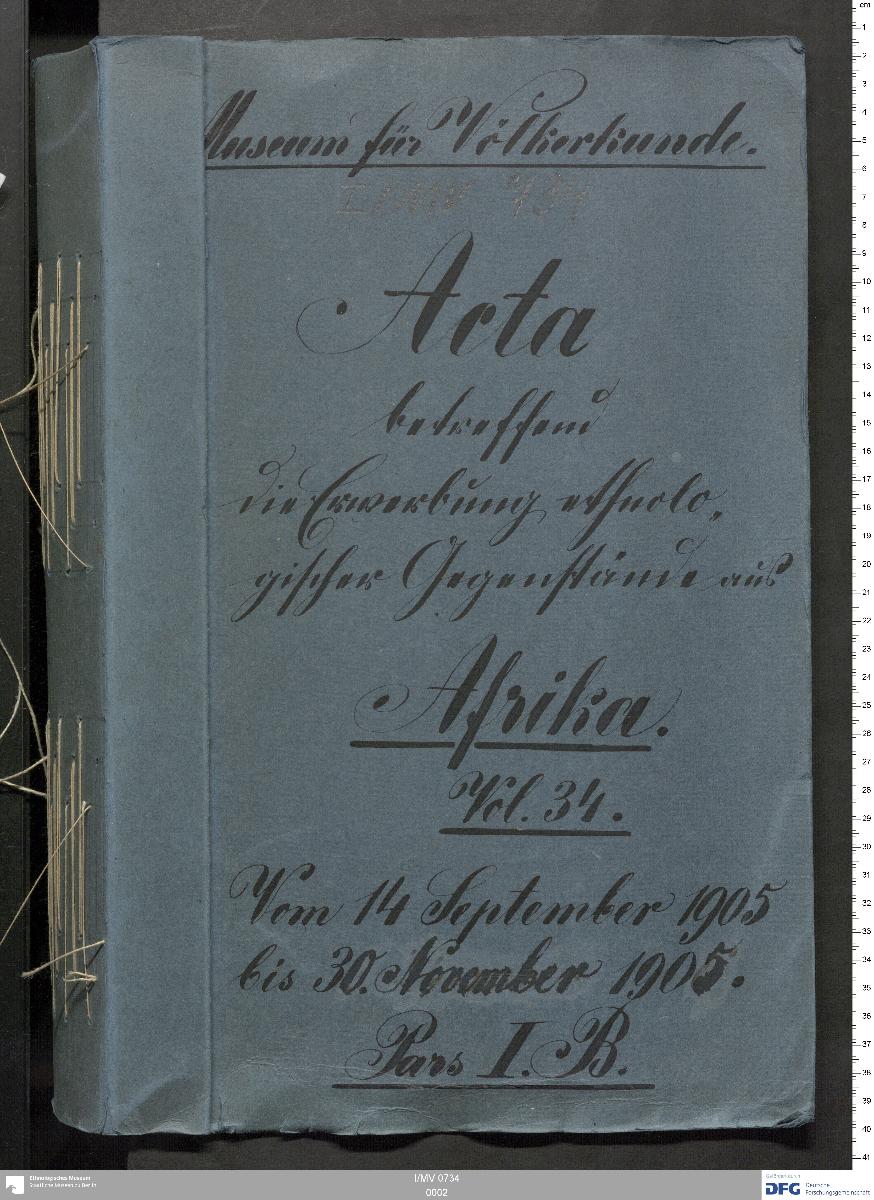 Museum für Völkerkunde.
I/MV 734
Acta
betreffend
die Erwerbung ethnolo„
gischer Gegenstände aus
Afrika.
Vol. 34.
Vom 14 September 1905
bis 30. November 1905.
Pars I. B.
cm
1
2
3
4
5
6
7
8
9
10
11
12
13
14
15
16
17
18
19
20
21
22
23
24
25
26
27
28
29
30
31
32
33
34
35
36
37
38
39
40
41
Ethnologisches Museum
Staatliche Museen zu Berlin
I/MV 0734
0002
Gefördert durch
DFG Deutsche
Forschungsgemeinschaft